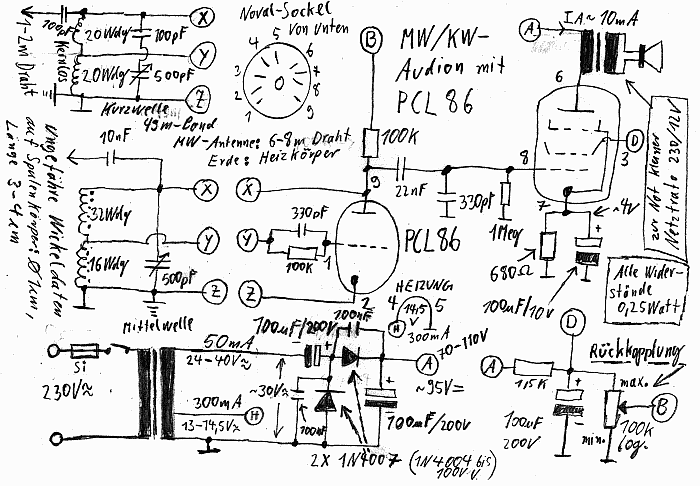 Noval-Sockel
von unten
1
2
3
4
5
6
7
8
9
MW/KW-
Audion mit
PCL 86
IA ~ 10mA
A
B
100pF
20Wdg
100pF
20Wdg
500pF
Kernlos
1-2m Draht
X
Y
Z
Kurzwelle
49m-Band
MW-Antenne: 6-8m Draht
Erde: Heizkörper
10nF
Ungefähre Wickeldaten
auf Spulenkörper: Ø 1cm,
Länge 3-4cm
32Wdg
16Wdg
500pF
X
Y
Z
Mittelwelle
X
Y
Z
330pF
100K
1
9
2
PCL86
100K
22nF
330pF
1Meg
6
8
7
3
D
~4V
680Ω
100uF/10V
zu Ngt kleiner
Netztrafo 230/12V
Alle Wider-
stände
0,25Watt
HEIZUNG
4
5
14,5
V
H
300mA
230V≈
Si
50mA
24-40V≈
300mA
13-14,5V≈
H
~30V≈
100uF/200V
100nF
100nF
70-110V
A
~95V=
100uF/200V
2X 1N4007 (1N4004 bis
100V v.)
D
A
1,5K
100uF
200V
Rückkopplung
max.
min.
B
100K
log.